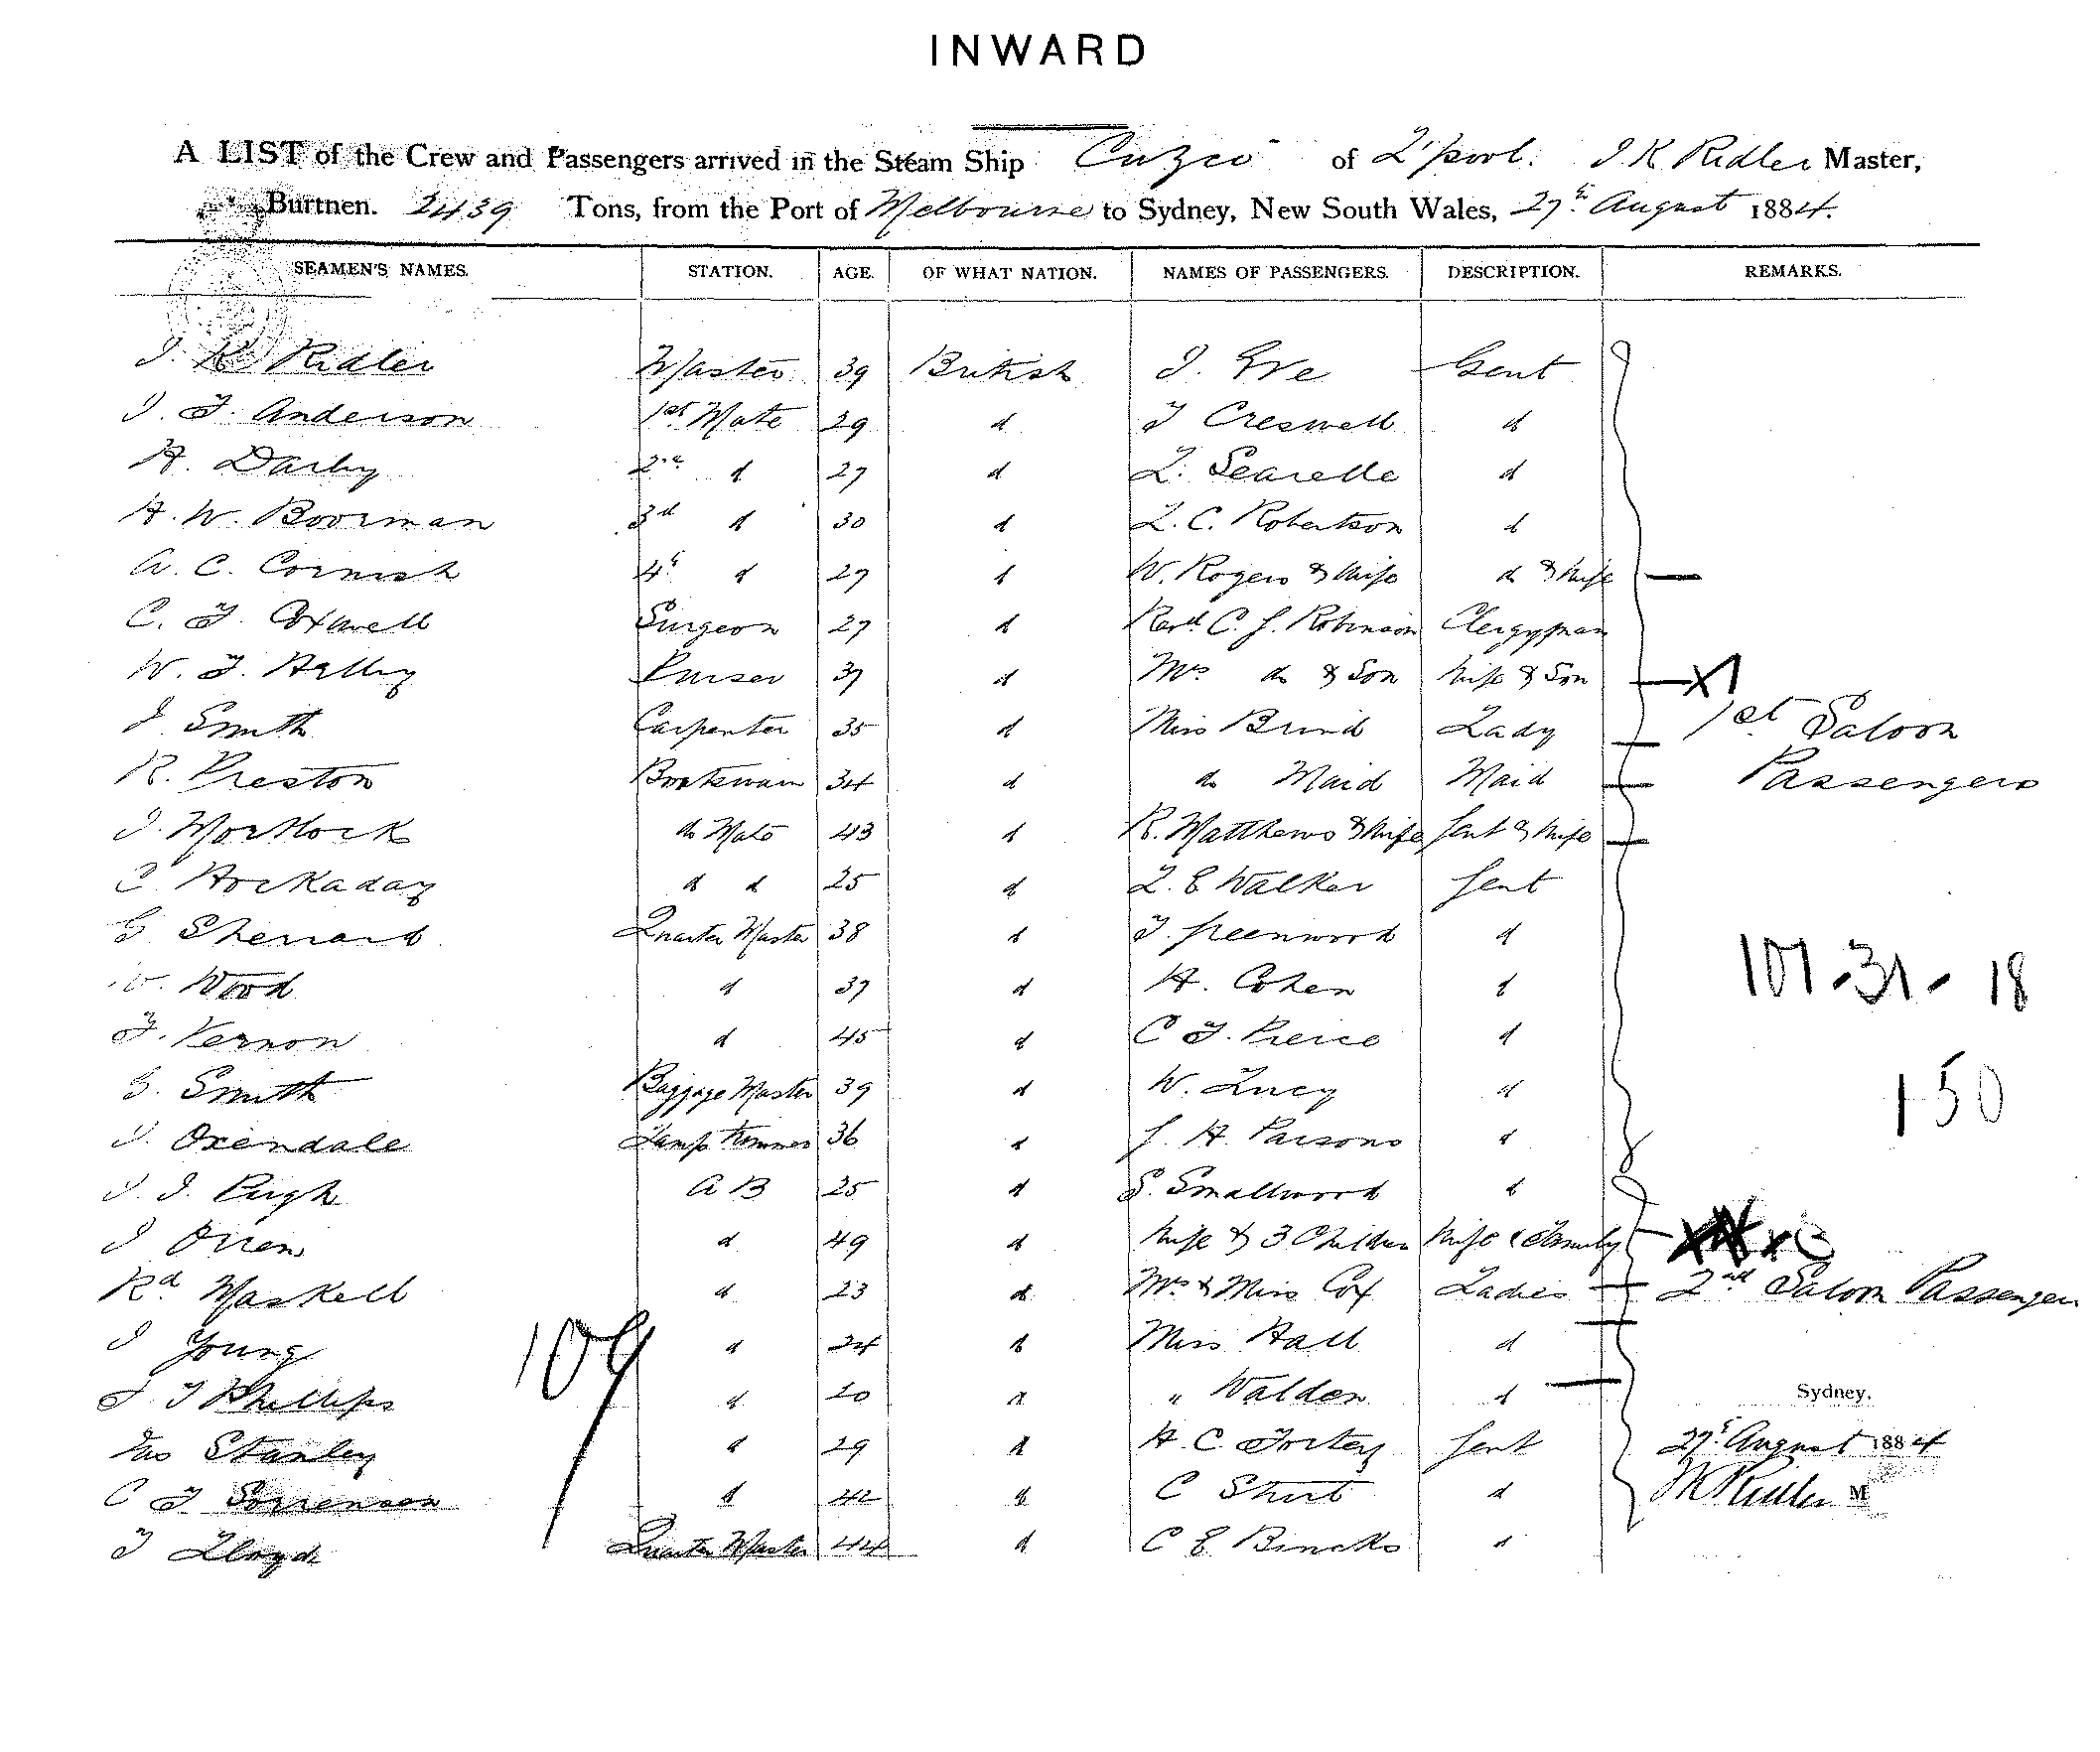 INWARD
A LIST of the Crew and Passengers arrived in the Steam Ship Cuzco of L'pool. J K Ridler Master,
Burthen. 2439 Tons, from the Port of Melbourne to Sydney, New South Wales, 27th August 1884.
SEAMEN'S NAMES. STATION. AGE. OF WHAT NATION. NAMES OF PASSENGERS. DESCRIPTION. REMARKS.
J. K. Ridler Master 39 British J. Eve Gent
J. F. Anderson 1st Mate 29 d T Creswell d
H. Darby 2nd d 27 d L. Searelle d
H. W. Boorman 3rd d 30 d L. C. Robertson d
A. C. Cornish 4th d 27 d W. Rogers & Wife do & Wife
C. F. Coxwell Surgeon 27 d Revd C. J. Robinson Clergyman
W. F. Purser 37 d Mrs do & Son Wife & Son
J Smith Carpenter 35 d Miss Brind Lady 1st Saloon
R. Preston Boatswain 34 d do Maid Maid Passengers
J. Mortlock do Mate 43 d R. Matthews & Wife Gent & Wife
C Hockaday d d 25 d L. E Walker Gent
G Sherrard Quarter Master 38 d T. Greenwood d
W. Wood d 37 d H. Cohen d 107 . 31 - 18
F. Vernon d 45 d C F. Pierce d
G. Smith Baggage Master 39 d W. Lucy d 150
J. Oxendale Lamp Trimmer 36 d J. H. Parsons d
J. J. Pugh A B 25 d S. Smallwood d
J Orren d 49 d Wife & 3 Children Wife & Family
Rd Maskell d 23 d Mrs & Miss Cox Ladies 2nd Saloon Passengers
J Young 109 d 24 d Miss Hall d
J. T Phillips d 20 d " Walden d Sydney.
Jno Stanley d 29 d H. C. Fortey Gent 27th August 1884
C F Sorrensen d 42 d C Shirt d J K Ridler M
T Lloyd Quarter Master 44 d C E Bincks d